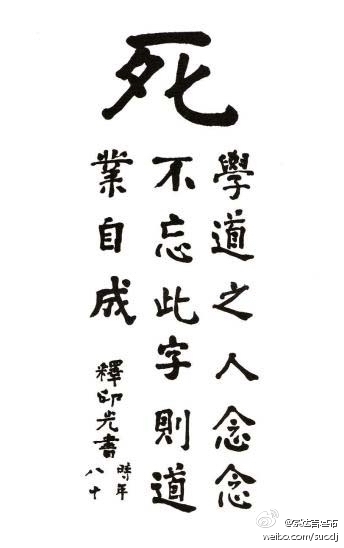 死
學道之人念念
不忘此字則道
業自成
釋印光書
時年
八十
weibo.com/sucdj